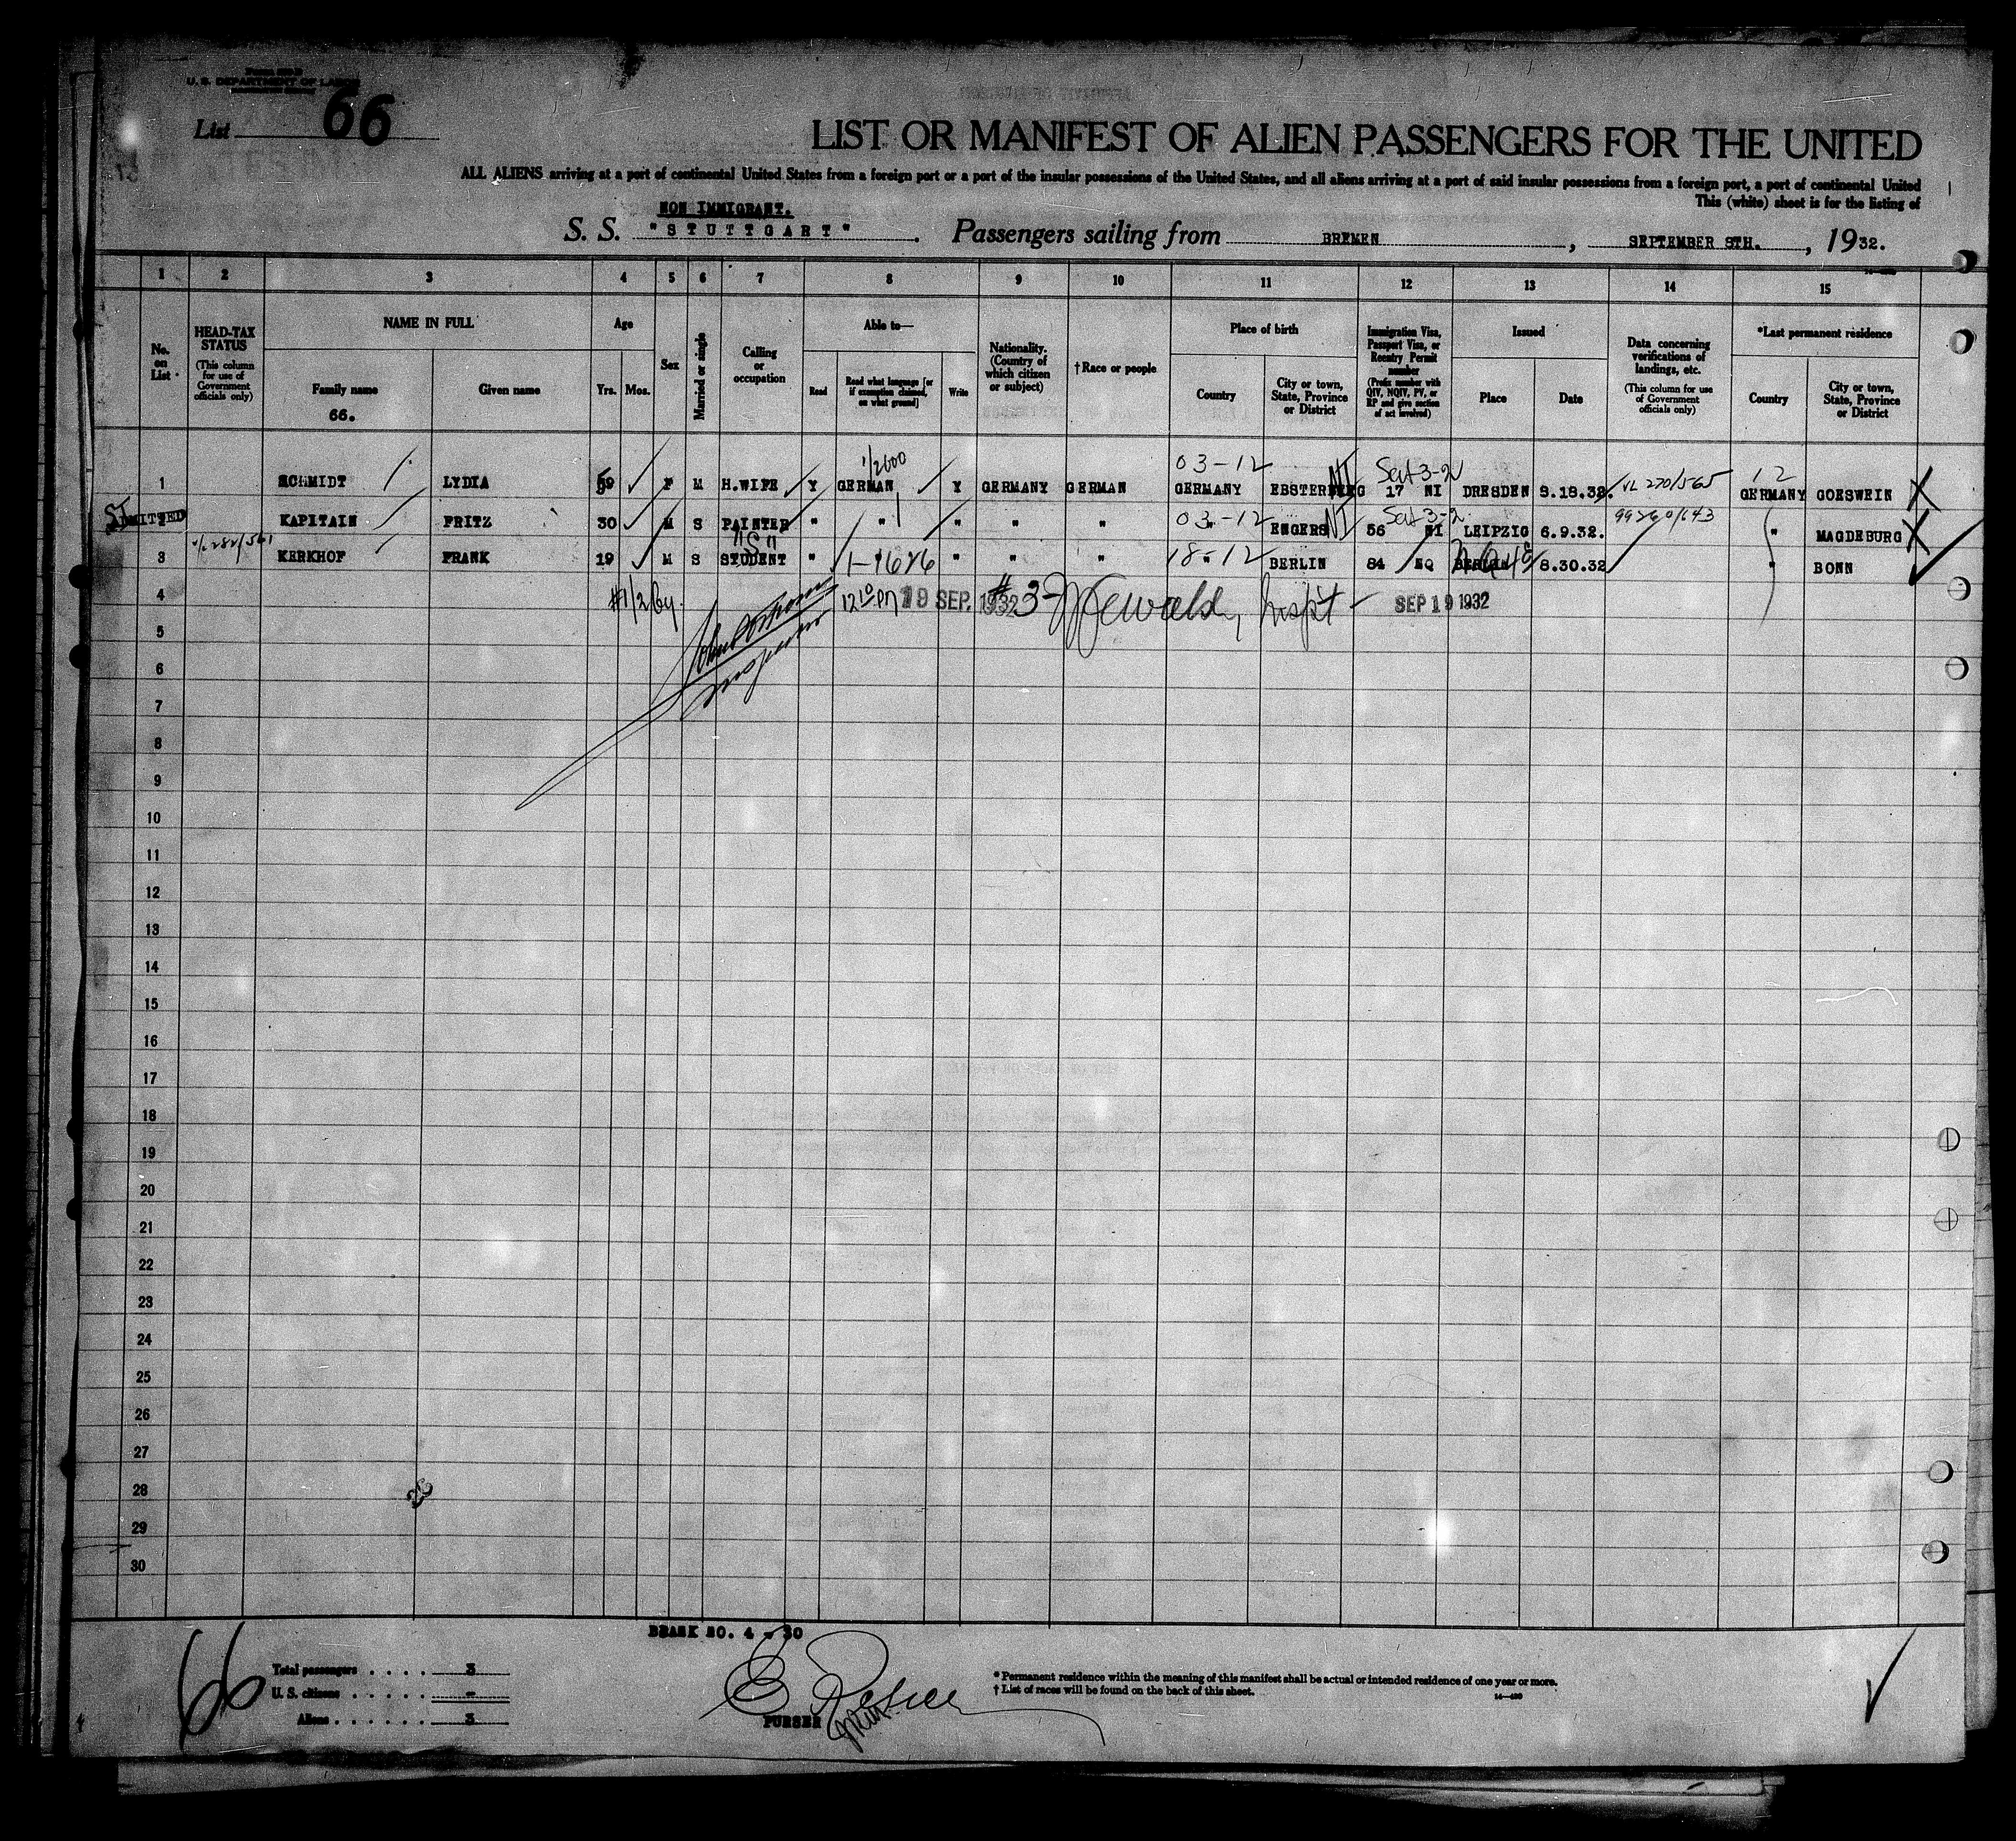 U. S. DEPARTMENT OF LABOR
List 66
LIST OR MANIFEST OF ALIEN PASSENGERS FOR THE UNITED
ALL ALIENS arriving at a port of continental United States from a foreign port or a port of the insular possessions of the United States, and all aliens arriving at a port of said insular possessions from a foreign port, a port of continental United
This (white) sheet is for the listing of
NON IMMIGRANT.
S. S. "STUTTGART". Passengers sailing from BREMEN, SEPTEMBER 8TH., 1932.
1 2 3 4 5 6 7 8 9 10 11 12 13 14 15
No. on List
HEAD-TAX STATUS (This column for use of Government officials only)
NAME IN FULL Family name Given name
66.
Age Yrs. Mos.
Sex
Married or single
Calling or occupation
Able to— Read Read what language [or if exemption claimed, on what ground] Write
Nationality. (Country of which citizen or subject)
†Race or people
Place of birth Country City or town, State, Province or District
Immigration Visa, Passport Visa, or Reentry Permit number (Prefix number with QIV, NQIV, PV, or RP and give section of act involved)
Issued Place Date
Data concerning verifications of landings, etc. (This column for use of Government officials only)
*Last permanent residence Country City or town, State, Province or District
1/2600 03-12 NI Sect 3-2 VL 270/565 12
1 SCHMIDT LYDIA 59 F M H.WIFE Y GERMAN Y GERMANY GERMAN GERMANY 17 NI DRESDEN GERMANY GOESWEIN X
03-12 NI Sect 3-2
2 KAPITAIN FRITZ 30 M S PAINTER " " " " " " ENGERS 56 NI LEIPZIG 6.9.32. " MAGDEBURG X
"S" 18-12
3 KERKHOF FRANK 19 M S STUDENT " " " " " " BERLIN 84 NQ 8.30.32 " BONN
4 #1/2 by 12 10 PM 19 SEP. 1932 #3- Inspt - SEP 19 1932
5
6
7
8
9
10
11
12
13
14
15
16
17
18
19
20
21
22
23
24
25
26
27
28
29
30
NO. 4 - 30
66
Total passengers . . . . . 3
U. S. citizens . . . . . -
Aliens . . . . . . 3
PURSER
* Permanent residence within the meaning of this manifest shall be actual or intended residence of one year or more.
† List of races will be found on the back of this sheet.